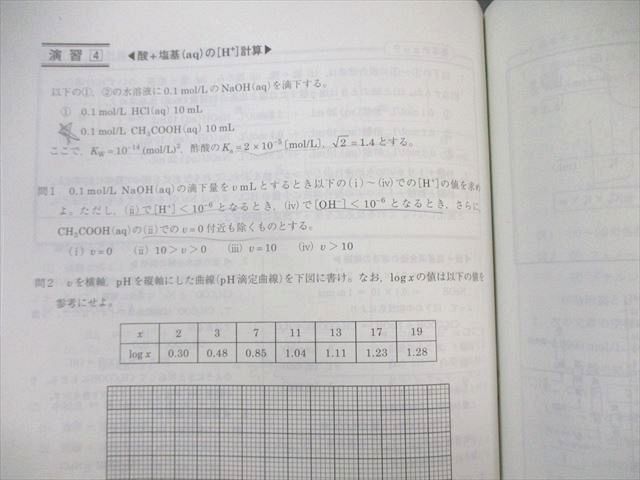 演習 4 ◀酸+塩基(aq)の[H⁺]計算▶
以下の①, ②の水溶液に0.1 mol/LのNaOH(aq)を滴下する。
① 0.1 mol/L HCl(aq) 10 mL
0.1 mol/L CH₃COOH(aq) 10 mL
ここで, Kw=10⁻¹⁴(mol/L)², 酢酸のKa=2×10⁻⁵[mol/L], √2=1.4とする。
問1 0.1 mol/L NaOH(aq)の滴下量をv mLとするとき以下の(i)~(iv)での[H⁺]の値を求め
よ。ただし, (ii)で[H⁺]<10⁻⁶となるとき, (iv)で[OH⁻]<10⁻⁶となるとき, さらに,
CH₃COOH(aq)の(ii)でのv=0付近も除くものとする。
(i) v=0 (ii) 10>v>0 (iii) v=10 (iv) v>10
問2 vを横軸, pHを縦軸にした曲線(pH滴定曲線)を下図に書け。なお, log xの値は以下の値を
参考にせよ。
x 2 3 7 11 13 17 19
log x 0.30 0.48 0.85 1.04 1.11 1.23 1.28